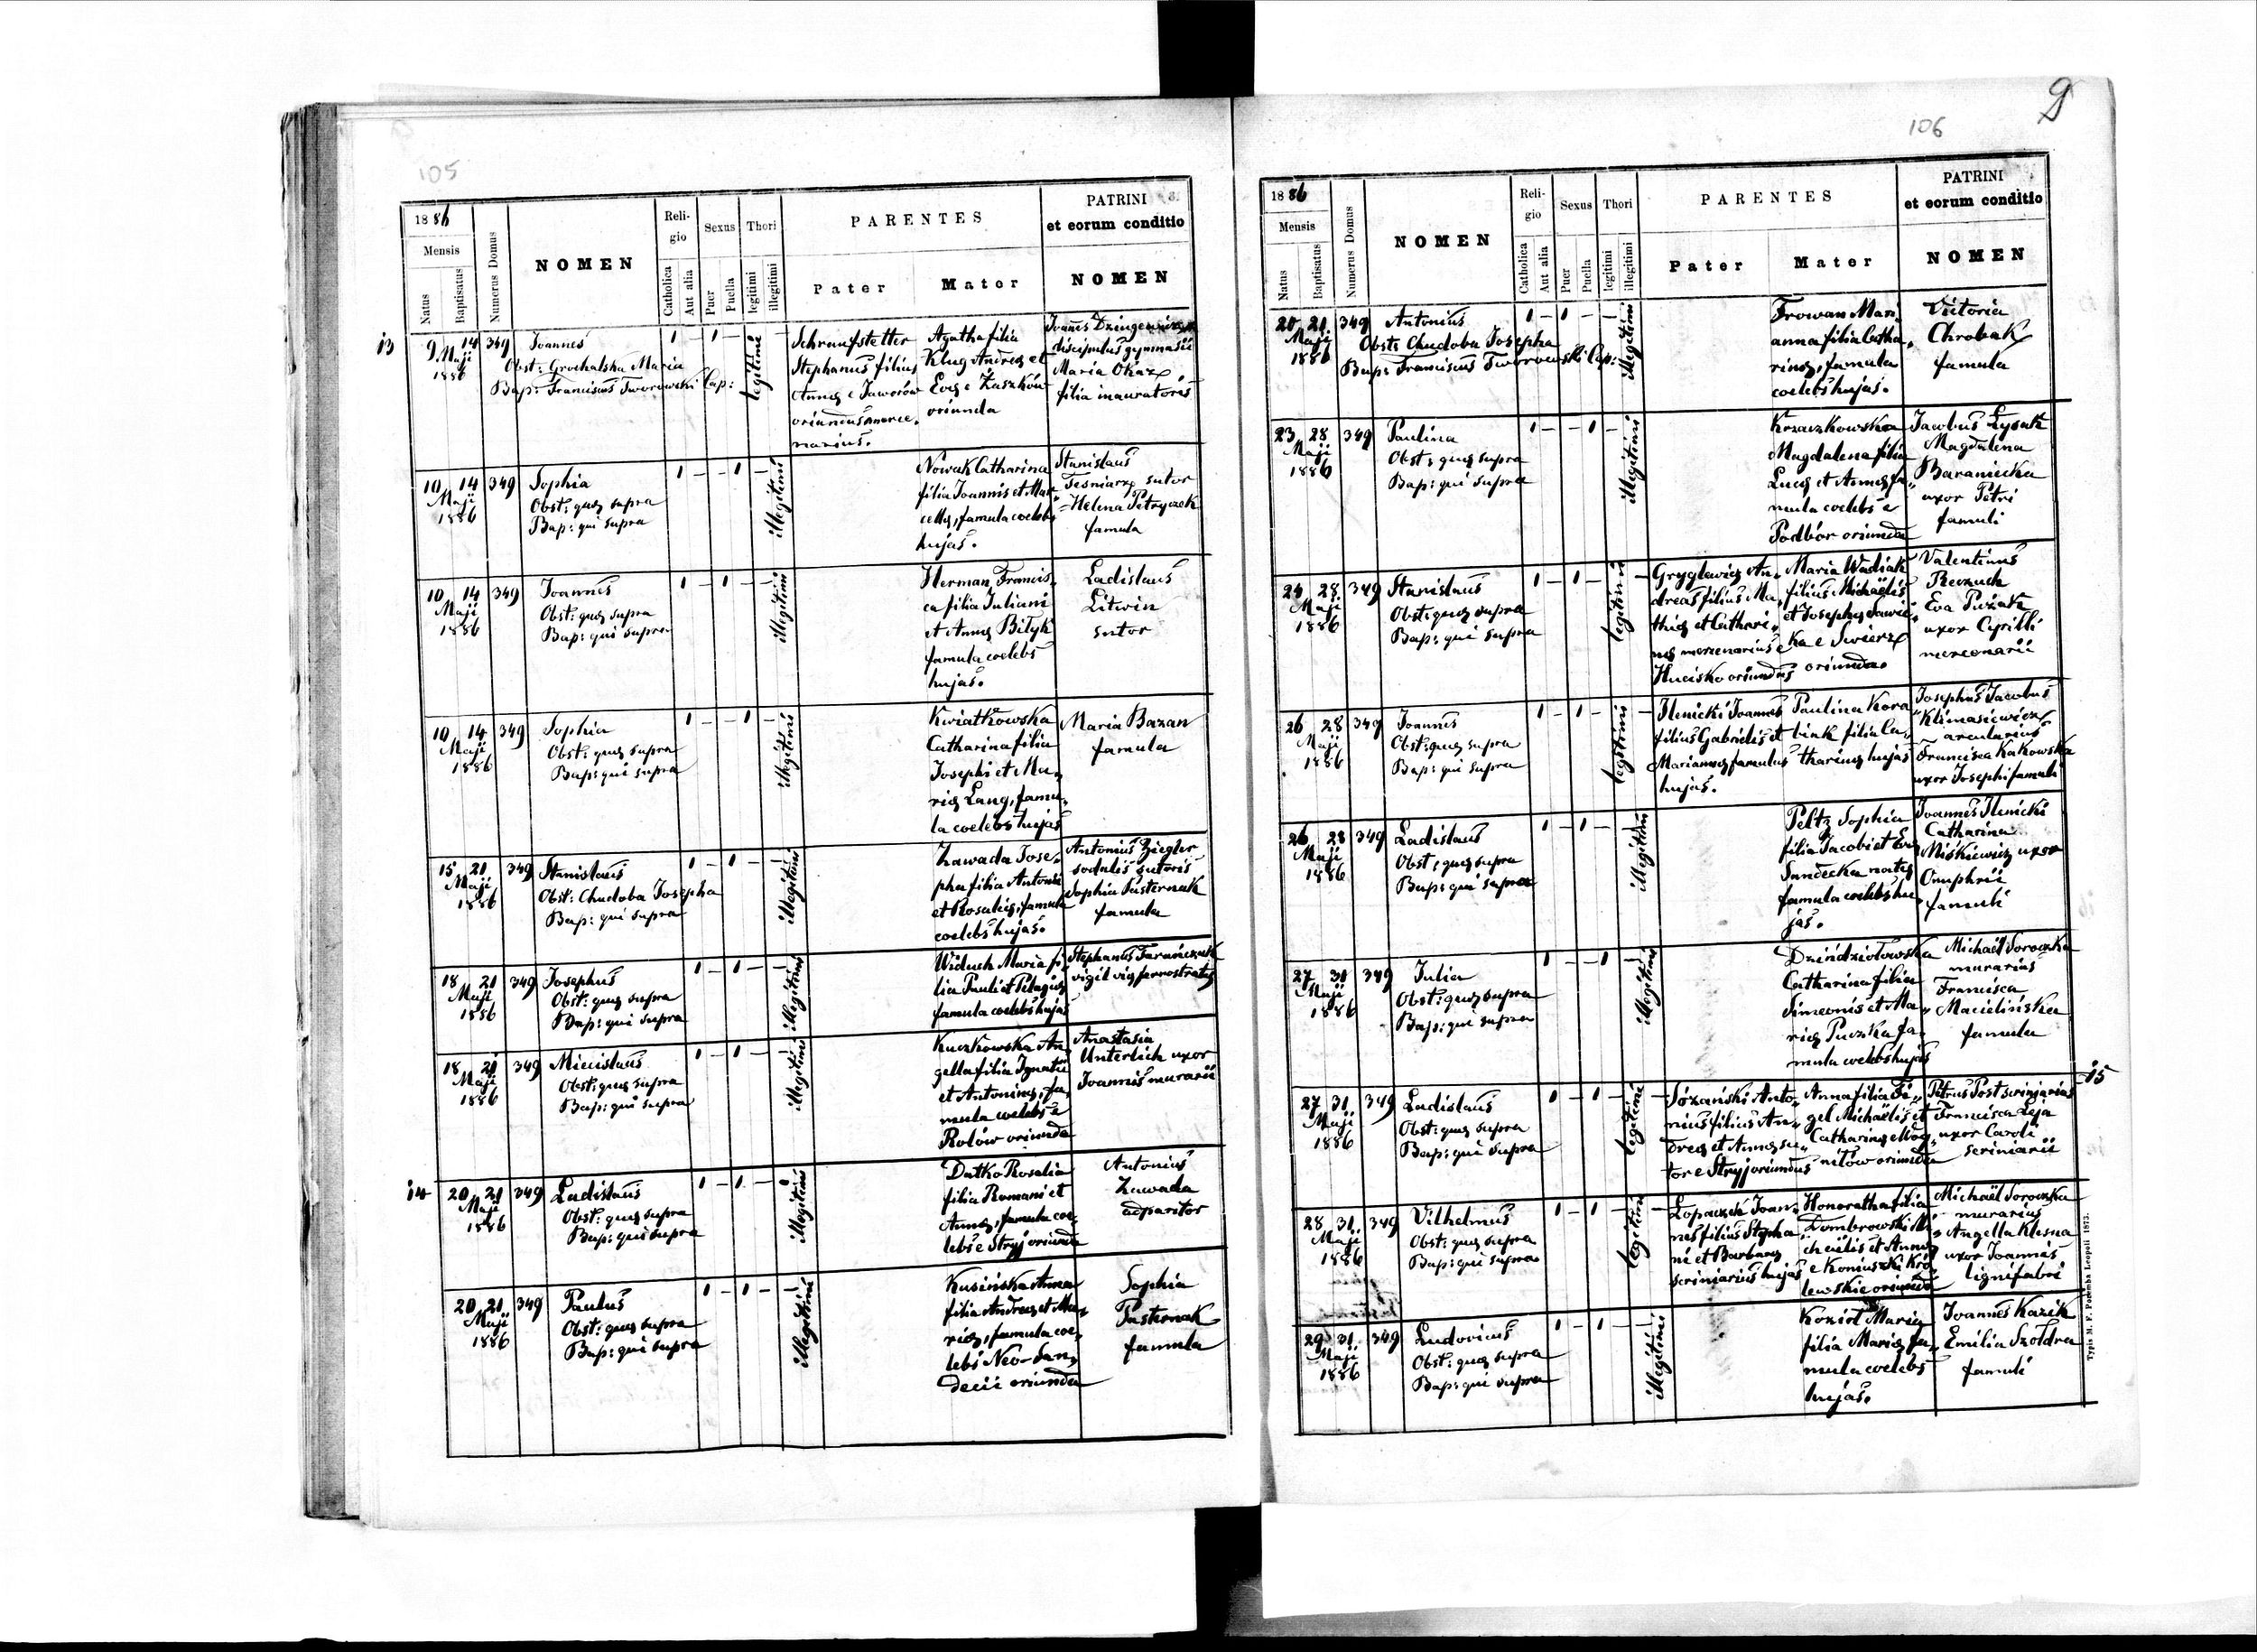 105
1886
Mensis
Natus
Baptisatus
Numerus Domus
NOMEN
Reli-
gio
Catholica
Aut alia
Sexus
Puer
Puella
Thori
legitimi
illegitimi
PARENTES
Pater
Mater
PATRINI
et eorum conditio
NOMEN
13
9 14 349
Maji
1886
Joannes
Obst: Grochalska Maria
Bap: Franciscus Tworowski Cap:
1 - 1 - 1 -
legitimi
Schraufstetter
Stephanus filius
Annæ e Jaworów
oriundus merce-
narius.
Agatha filia
Klug Andreæ et
Evæ e Zuszków
oriunda
Joannes
discipulus gymnasii
Maria
filia inauratoris
10 14 349
Maji
1886
Sophia
Obst: quæ supra
Bap: qui supra
1 - - 1 - 1
illegitimi
Nowak Catharina
filia Joannis et Mar-
cellæ, famula coelebs
hujas.
Stanislaus
Tesniarz sutor
Helena Petryczek
famula
10 14 349
Maji
1886
Joannes
Obst: quæ supra
Bap: qui supra
1 - 1 - - 1
illegitimi
Herman Francis-
ca filia Juliani
et Annæ Bilyk
famula coelebs
hujas.
Ladislaus
Litwin
sutor
10 14 349
Maji
1886
Sophia
Obst: quæ supra
Bap: qui supra
1 - - 1 - 1
illegitimi
Kwiatkowska
Catharina filia
Josephi et Ma-
riæ Lang, famu-
la coelebs hujas
Maria Bazan
famula
15 21 349
Maji
1886
Stanislaus
Obst: Chudoba Josepha
Bap: qui supra
1 - 1 - - 1
illegitimi
Zawada Jose-
pha filia Antonii
et Rosaliæ, famula
coelebs hujas.
Antonius Ziegler
sodalis sutoris
Sophia Pasternak
famula
18 21 349
Maji
1886
Josephus
Obst: quæ supra
Bap: qui supra
1 - 1 - - 1
illegitimi
Widuch Maria fi-
lia Pauli et Pelagiæ
famula coelebs hujas
Stephanus Tarańczuk
vigil viæ ferrostratæ
18 21 349
Maji
1886
Miecislaus
Obst: quæ supra
Bap: qui supra
1 - 1 - - 1
illegitimi
Kuczkowska An-
gella filia Ignatii
et Antoninæ, fa-
mula coelebs e
Rolów oriunda
Anastasia
Unterlich uxor
Joannis murarii
14
20 21 349
Maji
1886
Ladislaus
Obst: quæ supra
Bap: qui supra
1 - 1 - - 1
illegitimi
Dutko Rosalia
filia Romani et
Annæ, famula coe-
lebs e Stryj oriunda
Antonius
Zawada
adparitor
20 21 349
Maji
1886
Paulus
Obst: quæ supra
Bap: qui supra
1 - 1 - - 1
illegitimi
Kusińska Anna
filia Andreæ et Ma-
riæ, famula coe-
lebs Neo-San-
decii oriunda
Sophia
Pasternak
famula
106
9
1886
Mensis
Natus
Baptisatus
Numerus Domus
NOMEN
Reli-
gio
Catholica
Aut alia
Sexus
Puer
Puella
Thori
legitimi
illegitimi
PARENTES
Pater
Mater
PATRINI
et eorum conditio
NOMEN
20 21 349
Maji
1886
Antonius
Obst: Chudoba Josepha
Bap: Franciscus Tworowski Cap:
1 - 1 - - 1
illegitimi
Frowan Mari-
anna filia Catha-
rinæ, famula
coelebs hujas.
Victoria
Chrobak
famula
23 28 349
Maji
1886
Paulina
Obst: quæ supra
Bap: qui supra
1 - - 1 - 1
illegitimi
Krzaczkowska
Magdalena filia
Lucæ et Annæ fa-
mula coelebs e
Podbór oriunda
Jacobus Łysak
Magdalena
Baraniecka
uxor Petri
famuli
24 28 349
Maji
1886
Stanislaus
Obst: quæ supra
Bap: qui supra
1 - 1 - 1 -
legitimi
Gryglewicz An-
dreas filius Ma-
thiæ et Cathari-
næ mercenarius e
Hucisko oriundus
Maria Wadiak
filius Michaëlis
et Josephæ Sawic-
ka e Swierz
oriunda.
Valentinus
Reczuch
Eva Puzak
uxor Cyrilli
mercenarii
26 28 349
Maji
1886
Joannes
Obst: quæ supra
Bap: qui supra
1 - 1 - 1 -
legitimi
Ilenicki Joannes
filius Gabrielis et
Mariannæ famulus
hujas.
Paulina Kora-
biak filia Ca-
tharinæ hujas
Josephus Jacobus
Klimasiewicz
arcularius
Francisca Kakowska
uxor Josephi famuli
26 28 349
Maji
1886
Ladislaus
Obst: quæ supra
Bap: qui supra
1 - 1 - - 1
illegitimi
Peltz Sophia
filia Jacobi et Evæ
Sandecka natæ
famula coelebs hu-
jas.
Joannes Ilenicki
Catharina
Miskiewicz uxor
Onuphrii
famuli
27 31 349
Maji
1886
Julia
Obst: quæ supra
Bap: qui supra
1 - - 1 - 1
illegitimi
Dzindziołowska
Catharina filia
Simeonis et Ma-
riæ Puczka fa-
mula coelebs hujas
Michaël Soroczka
murarius
Francisca
Macielińska
famula
15
27 31 349
Maji
1886
Ladislaus
Obst: quæ supra
Bap: qui supra
1 - 1 - 1 -
legitimi
Sózański Anto-
nius filius An-
dreæ et Annæ su-
tor e Stryj oriundus
Anna filia Fi-
gel Michaëlis et
Catharinæ e
oriunda
Petrus Post scriniarius
Francisca Leja
uxor Caroli
scriniarii
28 31 349
Maji
1886
Vilhelmus
Obst: quæ supra
Bap: qui supra
1 - 1 - 1 -
legitimi
Łopaczek Joan-
nes filius Stepha-
ni et Barbaræ
scriniarius hujas
Honoratha filia
Dombrowski Mi-
chaëlis et Annæ
e Koniuszki Kró-
lewskie oriunda
Michaël Soroczka
murarius
Angella Klesna
uxor Joannis
lignifabri
29 31 349
Maji
1886
Ludovicus
Obst: quæ supra
Bap: qui supra
1 - 1 - - 1
illegitimi
Kozioł Maria
filia Mariæ fa-
mula coelebs
hujas.
Joannes Kazik
Emilia Szołdra
famuli
Typis M. F. Poremba Leopoli 1873.